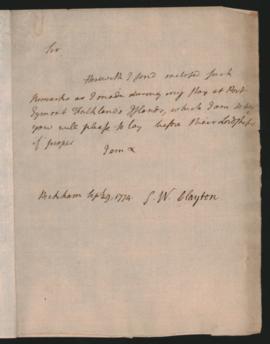 Sir
Herewith I send inclosed such
Remarks as I made during my stay at Port
Egmont Falklands Islands, which I am to beg
you will please to lay before their Lordships
if proper
I am &
Peckham Sept 29. 1774. S. W. Clayton